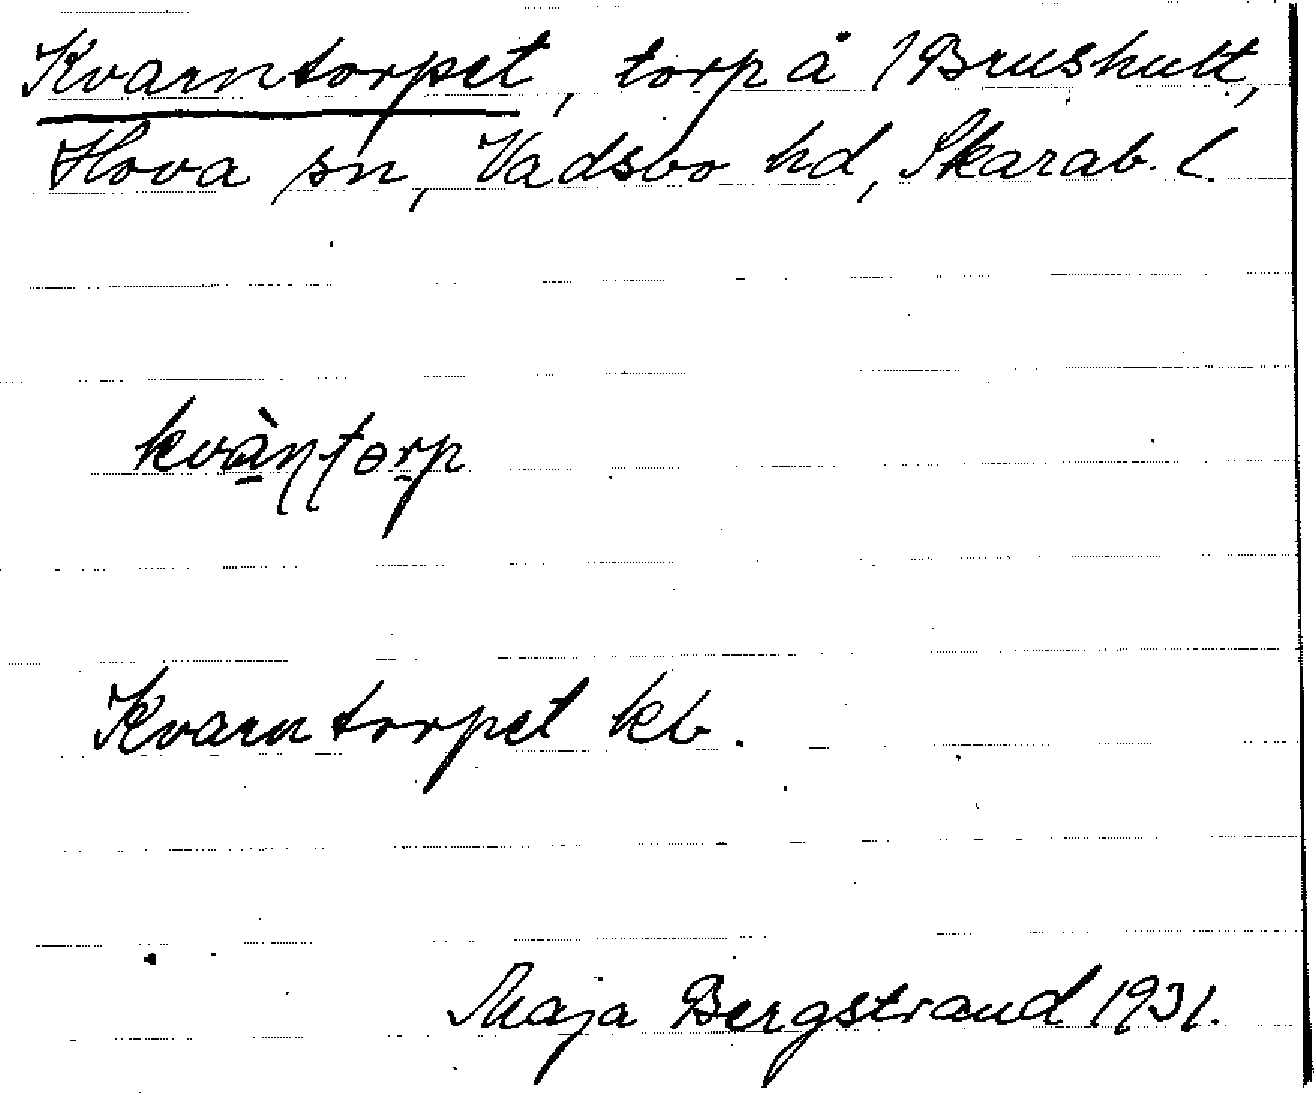 Kvarntorpet, torp å /Brushult,
Hova sn, Vadsbo hd, Skarab. l.
kvàn̡t̡ɵrp
Kvarntorpet kb.
Maja Bergstrand 1931.